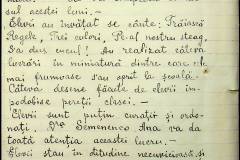 sul acestei luni.—
Elevii au învățat se cânte: Trăiască
Regele, Trei colori, Pe-al nostru steag,
Sa dus cucul! Au realizat câteva
lucrări în miniatură dintre care cele
mai frumoase s'au oprit la școală.
Câteva desene făcute de elevii îm-
podobise pereții clasei.—
Elevii sunt puțin curații și ordo-
nați. Dna Semenenco Ana va da
toată atenția acestei lucru.—
Elevii stau în atitudine necuviincioasă și